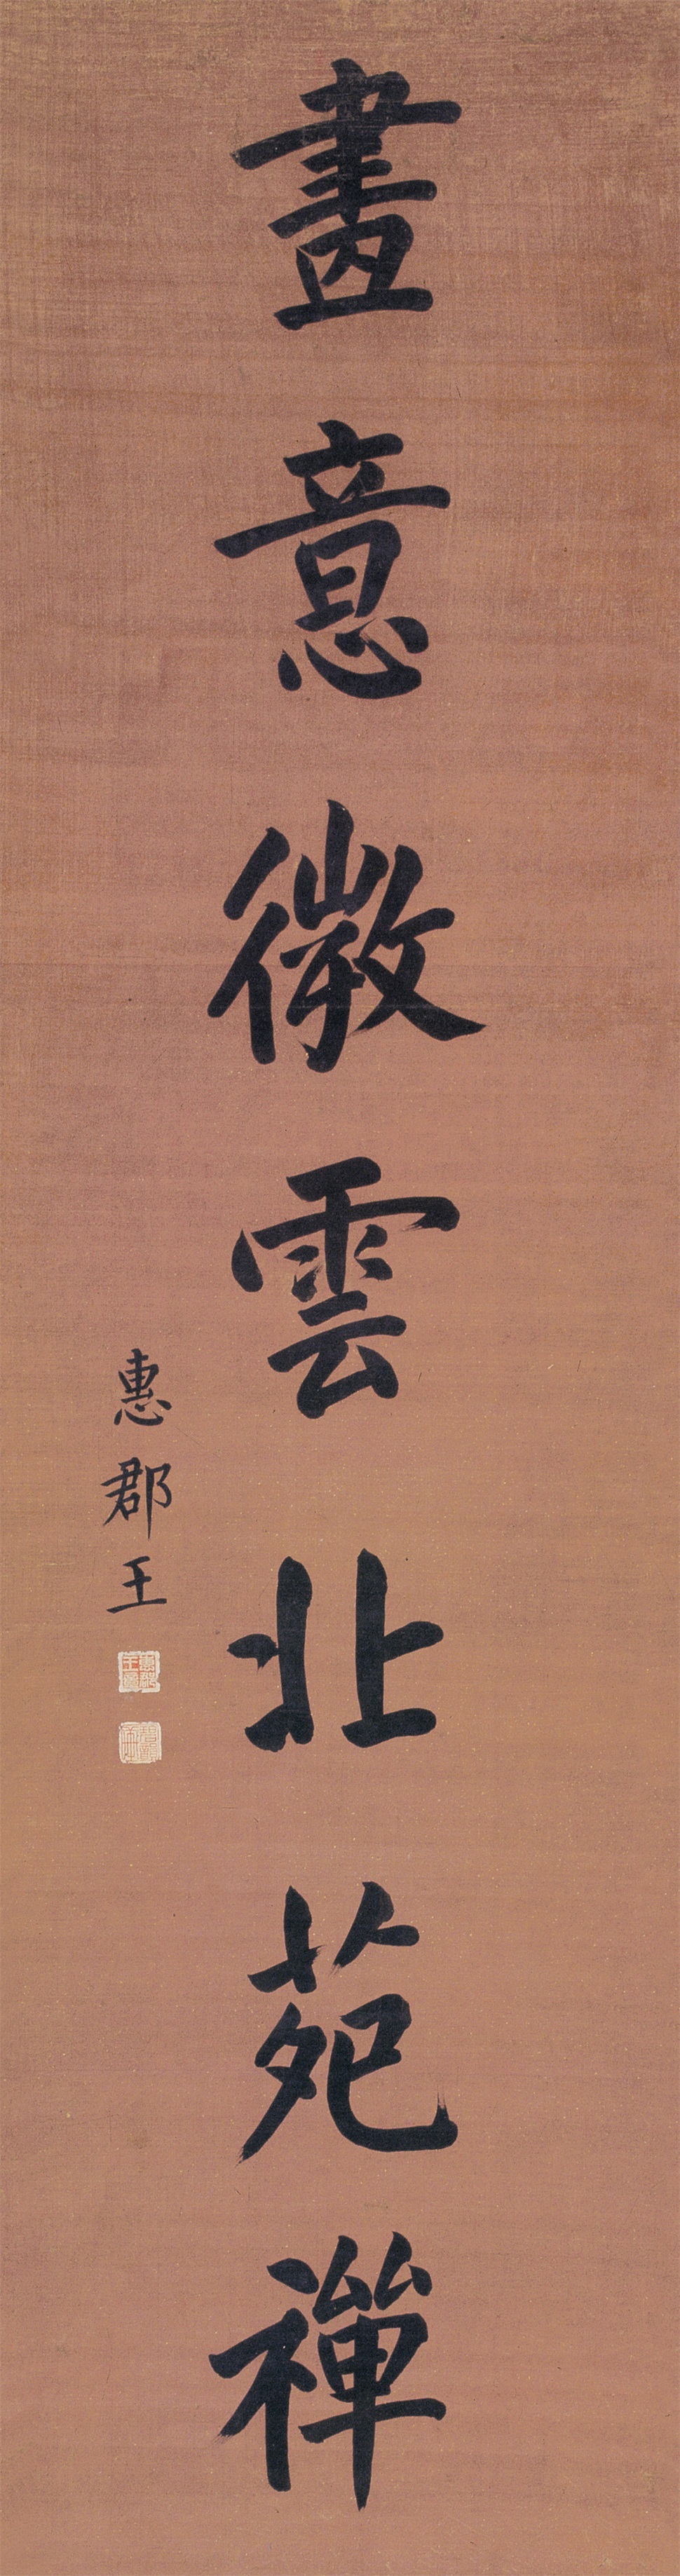 畫意微雲北苑禪
惠郡王